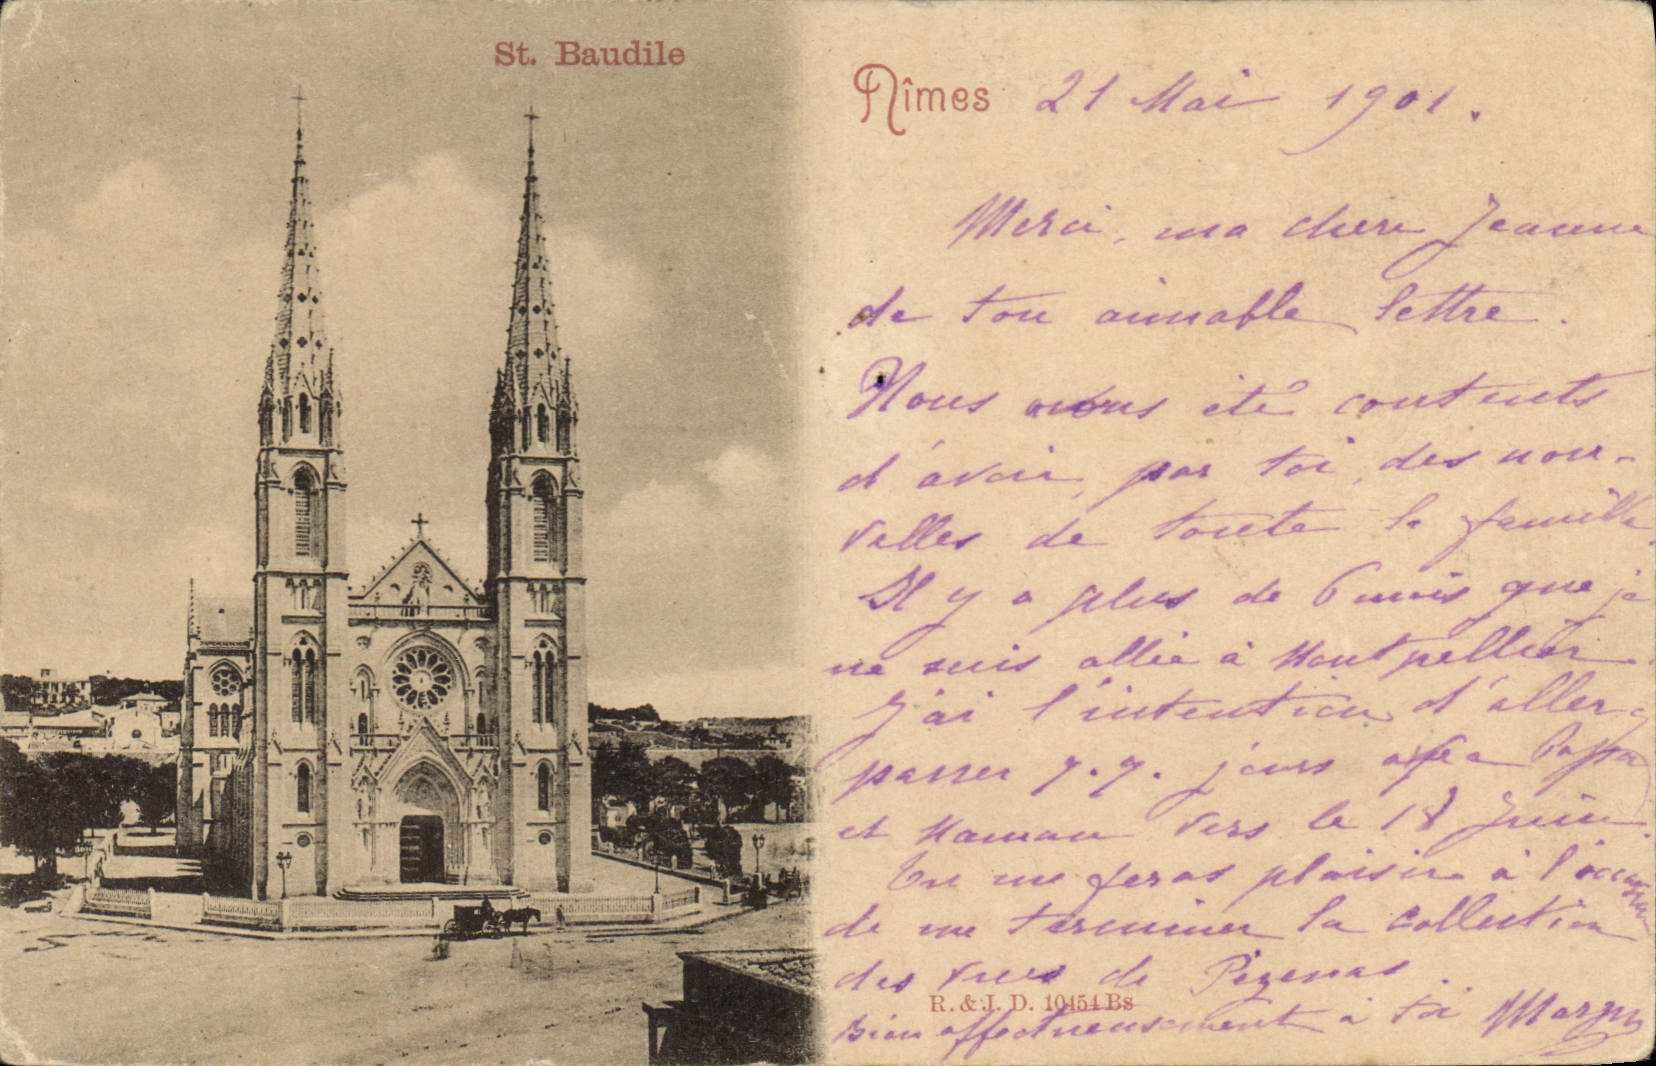 St. Baudile
Nîmes 21 Mai 1901.
Merci, ma chere Jeanne
de ton aimable lettre.
Nous avons été contents
d'avoir, par toi, des nou-
velles de toute la famille.
Il y a plus de 6 mois que je
ne suis allée à Montpellier.
J'ai l'intention d'aller y
passer q.q. jours avec Papa
et Maman vers le 18 Juin.
Tu me feras plaisir à l'occasion
de me terminer la collection
des vues de Pézenas.
R. & J. D. 10454 Bs
Bien affectueusement à toi